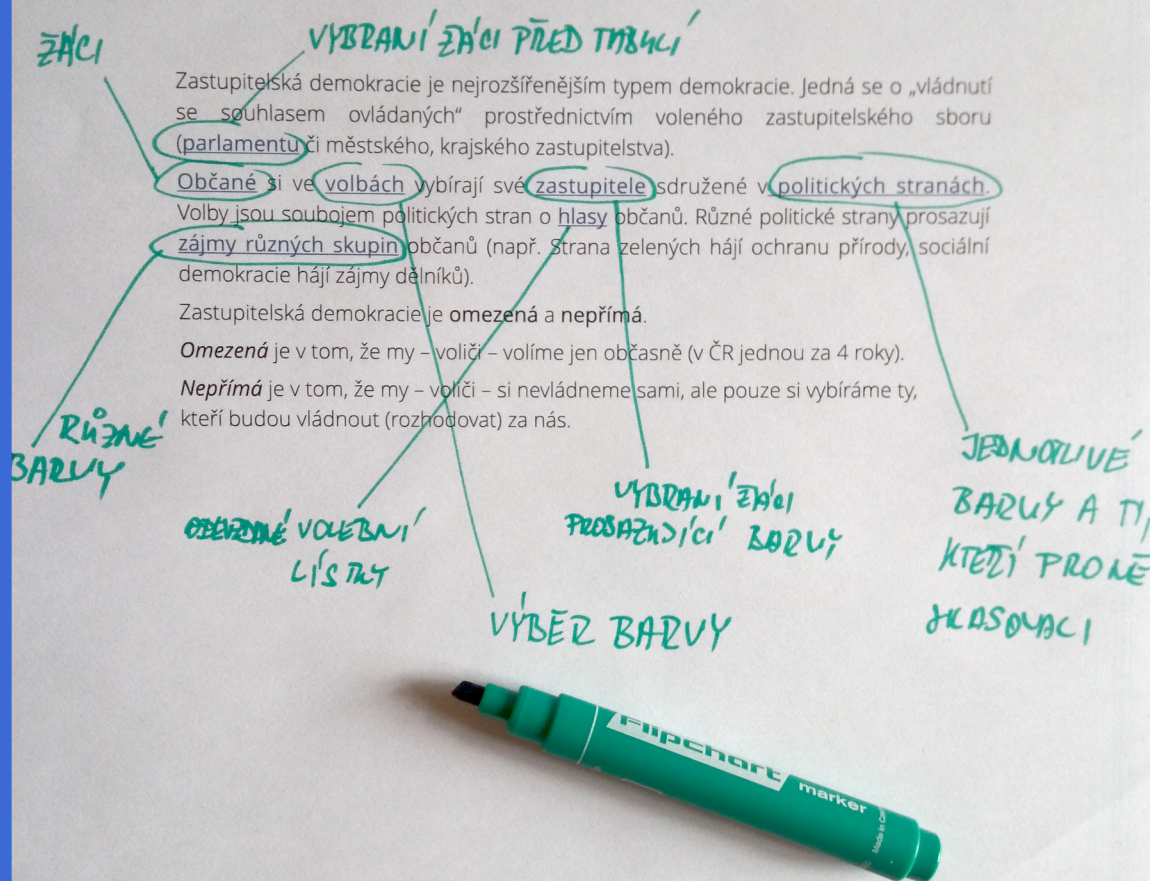 ŽÁCI
VYBRANÍ ŽÁCI PŘED TABULÍ
Zastupitelská demokracie je nejrozšířenějším typem demokracie. Jedná se o „vládnutí
se souhlasem ovládaných“ prostřednictvím voleného zastupitelského sboru
(parlamentu či městského, krajského zastupitelstva).
Občané si ve volbách vybírají své zastupitele sdružené v politických stranách.
Volby jsou soubojem politických stran o hlasy občanů. Různé politické strany prosazují
zájmy různých skupin občanů (např. Strana zelených hájí ochranu přírody, sociální
demokracie hájí zájmy dělníků).
Zastupitelská demokracie je omezená a nepřímá.
Omezená je v tom, že my – voliči – volíme jen občasně (v ČR jednou za 4 roky).
Nepřímá je v tom, že my – voliči – si nevládneme sami, ale pouze si vybíráme ty,
kteří budou vládnout (rozhodovat) za nás.
RŮZNÉ
BARVY
VOLEBNÍ
LÍSTKY
VÝBĚR BARVY
VYBRANÍ ŽÁCI
PROSAZUJÍCÍ BARVY
JEDNOTLIVÉ
BARVY A TI,
KTEŘÍ PRO NĚ
HLASOVALI
Flipchart
marker